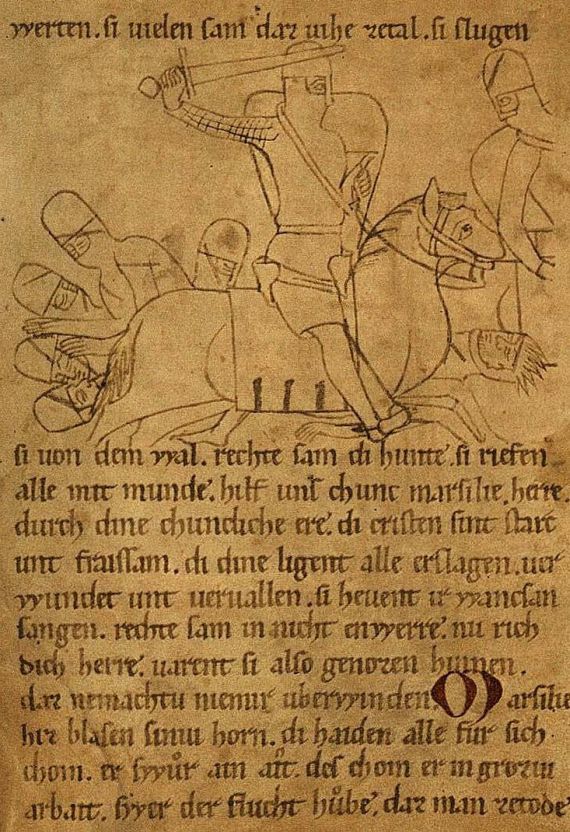 werten. si uielen sam daz uihe zetal. si slugen
si uon dem wal. rechte sam di hunte. si riefen
alle mit munde. hilf unſ chunc marsilie. herre.
durch dine chuncliche ere. di cristen sint starc
unt fraissam. di dine ligent alle erslagen. uer
wundet unt ueruallen. si heuent ir wancsan
sangen. rechte sam in nicht enwerre. nu rich
dich herre. uarent si also genozen hinnen.
daz nemachtu niemir uberwinden. Marsilie
hiz blasen siniu horn. di haiden alle fur sich
chom. er swůr ain ait. des chom er in groziu
arbait. swer der flucht hůbe. daz man zetode